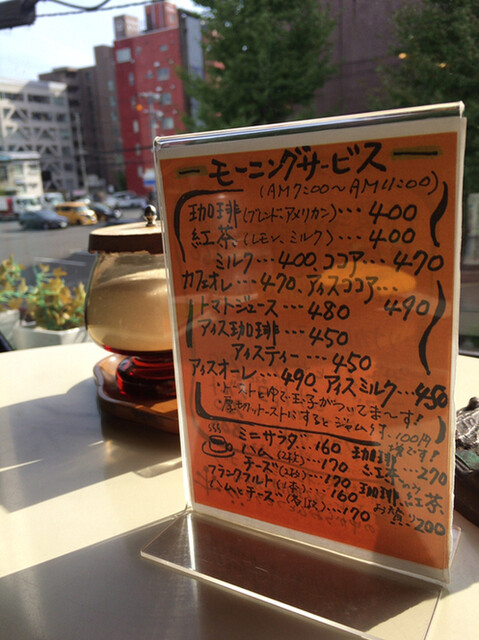 モーニングサービス
(AM7:00～AM11:00)
珈琲(ブレンド・アメリカン)…400
紅茶(レモン、ミルク)…400
ミルク…400、ココア…470
カフェオレ…470、アイスココア…490
トマトジュース…480
アイス珈琲…450
アイスティー…450
アイスオーレ…490、アイスミルク…450
・トーストとゆで玉子がついてま～す!
・厚切トーストにするとジャム付、100円
ミニサラダ…160
ハム(2枚)…170
チーズ(2枚)…170
フランクフルト(1本)…160
ハムとチーズ(各1枚)…170
珈琲
紅茶…270
珈琲、紅茶
お替り200